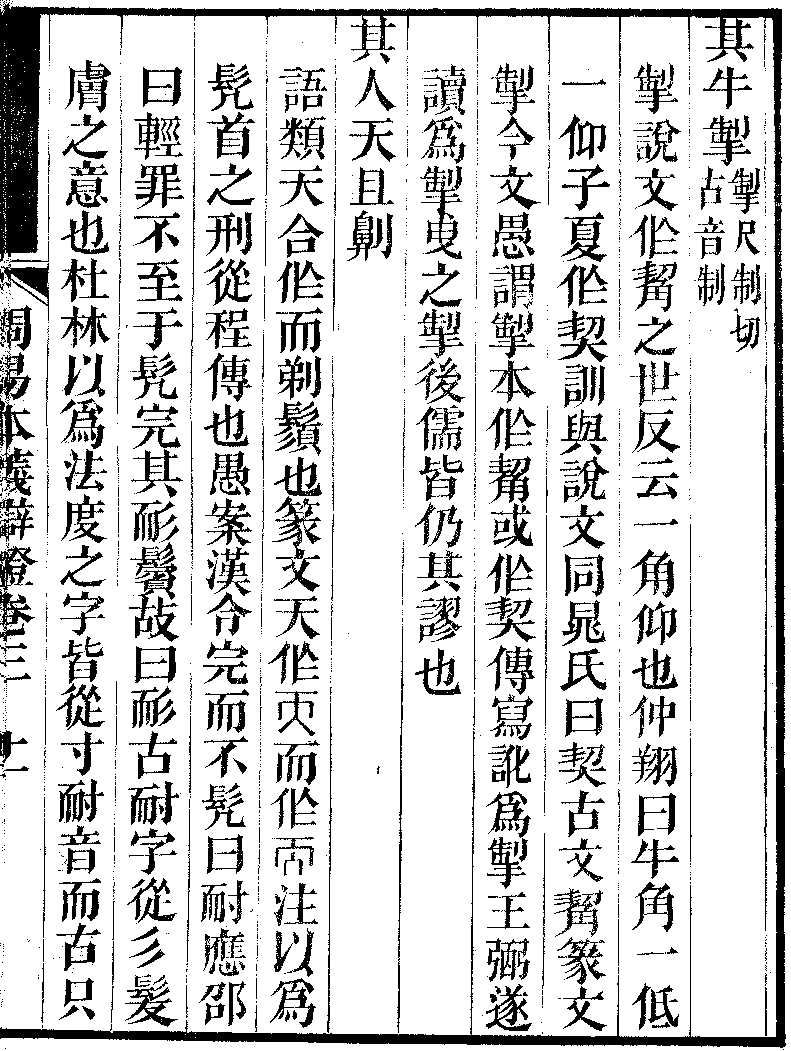 其牛掣掣尺制切占音制
掣說文作觢之世反云一角仰也仲翔曰牛角一低
一仰子夏作契訓與說文同晁氏曰契古文觢篆文
掣今文愚謂掣本作觢或作契傳寫訛爲掣王弼遂
讀爲掣曳之掣後儒皆仍其謬也
其人天且劓
語類天合作而剃鬚也篆文天作𠀘而作𦓐注以爲
髠首之刑從程傳也愚案漢令完而不髠曰耐應邵
曰輕罪不至于髠完其耏鬢故曰耏古耐字從彡髮
膚之意也杜林以爲法度之字皆從寸耐音而古只
周易本義辯證卷三 十一